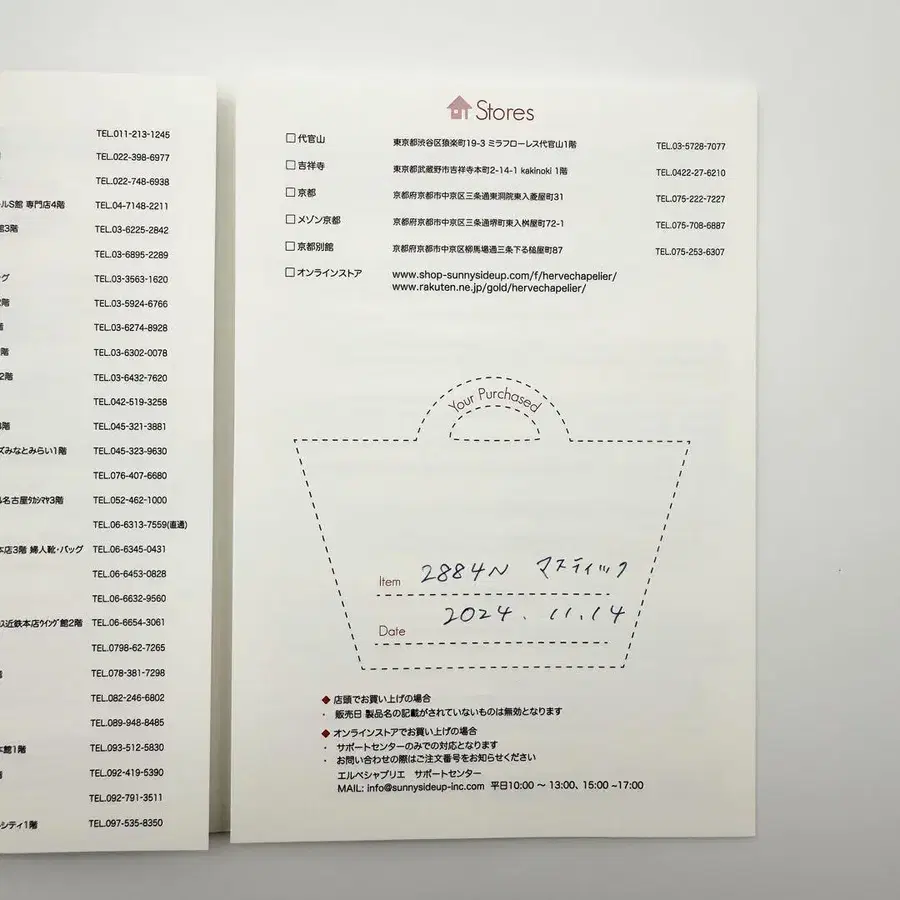 TEL.011-213-1245
TEL.022-398-6977
TEL.022-748-6938
ルS館 専門店4階 TEL.04-7148-2211
館3階 TEL.03-6225-2842
TEL.03-6895-2289
グ TEL.03-3563-1620
階 TEL.03-5924-6766
階 TEL.03-6274-8928
階 TEL.03-6302-0078
2階 TEL.03-6432-7620
TEL.042-519-3258
階 TEL.045-321-3881
ズみなとみらい1階 TEL.045-323-9630
TEL.076-407-6680
名古屋タカシマヤ3階 TEL.052-462-1000
TEL.06-6313-7559(直通)
本店3階 婦人靴・バッグ TEL.06-6345-0431
TEL.06-6453-0828
TEL.06-6632-9560
近鉄本店ウイング館2階 TEL.06-6654-3061
TEL.0798-62-7265
TEL.078-381-7298
TEL.082-246-6802
TEL.089-948-8485
館1階 TEL.093-512-5830
階 TEL.092-419-5390
TEL.092-791-3511
シティ1階 TEL.097-535-8350
Stores
□代官山 東京都渋谷区猿楽町19-3 ミラフローレス代官山1階 TEL.03-5728-7077
□吉祥寺 東京都武蔵野市吉祥寺本町2-14-1 kakinoki 1階 TEL.0422-27-6210
□京都 京都府京都市中京区三条通東洞院東入菱屋町31 TEL.075-222-7227
□メゾン京都 京都府京都市中京区三条通堺町東入桝屋町72-1 TEL.075-708-6887
□京都別館 京都府京都市中京区柳馬場通三条下る槌屋町87 TEL.075-253-6307
□オンラインストア www.shop-sunnysideup.com/f/hervechapelier/
www.rakuten.ne.jp/gold/hervechapelier/
Your Purchased
Item 2884N マスティック
Date 2024.11.14
◆店頭でお買い上げの場合
・ 販売日 製品名の記載がされていないものは無効となります
◆オンラインストアでお買い上げの場合
・ サポートセンターのみでの対応となります
・ お問い合わせの際はご注文番号をお知らせください
エルベシャプリエ サポートセンター
MAIL: info@sunnysideup-inc.com 平日10:00 〜 13:00、15:00 ~17:00